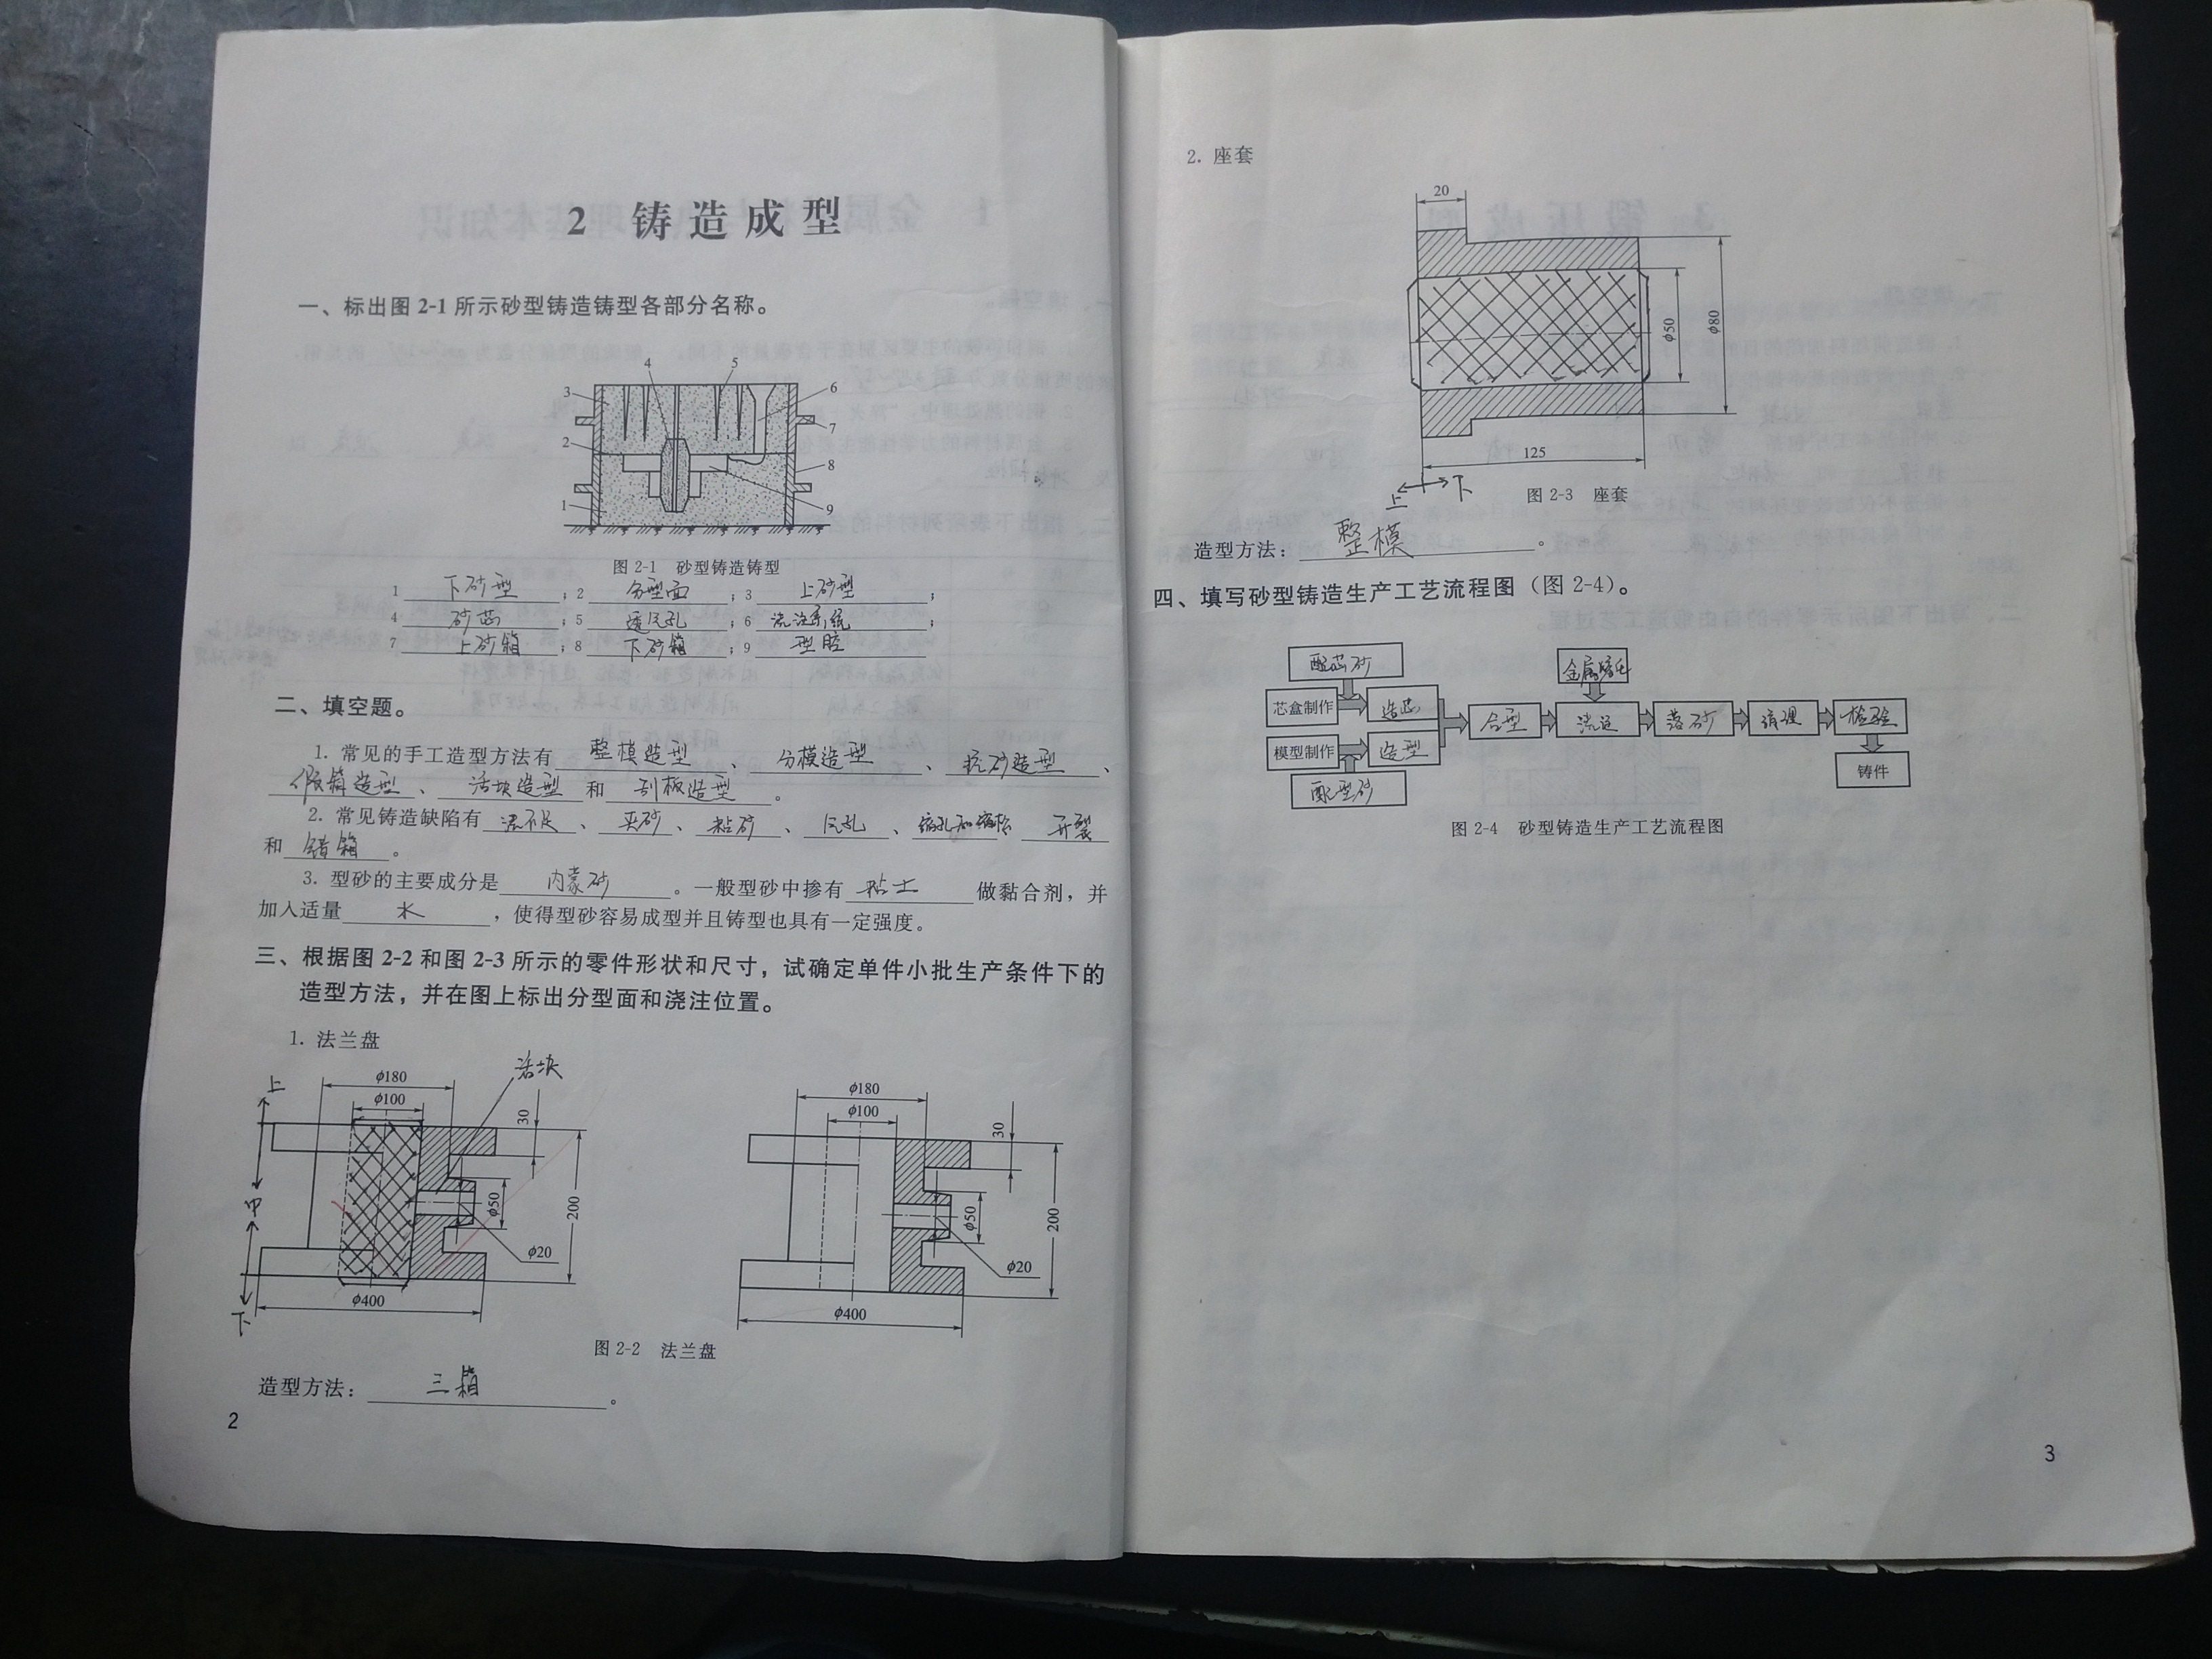 2 铸造成型
一、标出图 2-1 所示砂型铸造铸型各部分名称。
4 5
3 6
7
2 8
1 9
图 2-1 砂型铸造铸型
1 下砂型 ;2 分型面 ;3 上砂型 ;
4 砂芯 ;5 透气孔 ;6 浇注系统
7 上砂箱 ;8 下砂箱 ;9 型腔
二、填空题。
1. 常见的手工造型方法有 整模造型 、 分模造型 、 挖砂造型 、
假箱造型 、 活块造型 和 刮板造型 。
2. 常见铸造缺陷有 浇不足 、 夹砂 、 粘砂 、 气孔 、 缩孔和缩松 开裂
和 错箱 。
3. 型砂的主要成分是 内蒙砂 。一般型砂中掺有 粘土 做黏合剂，并
加入适量 水 ，使得型砂容易成型并且铸型也具有一定强度。
三、根据图 2-2 和图 2-3 所示的零件形状和尺寸，试确定单件小批生产条件下的
造型方法，并在图上标出分型面和浇注位置。
1. 法兰盘
活块
上 中 下
ϕ180
ϕ100
30
ϕ50
200
ϕ20
ϕ400
ϕ180
ϕ100
30
ϕ50
200
ϕ20
ϕ400
图 2-2 法兰盘
造型方法： 三箱 。
2
2. 座套
20
ϕ50
ϕ80
125
上 下
图 2-3 座套
造型方法： 整模 。
四、填写砂型铸造生产工艺流程图（图 2-4）。
配芯砂 金属熔化
芯盒制作 造芯
合型 浇注 落砂 清理 检验
模型制作 造型
铸件
配型砂
图 2-4 砂型铸造生产工艺流程图
3